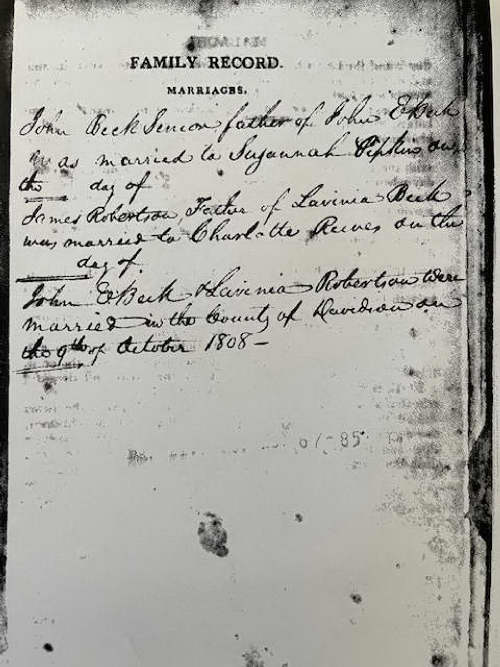 FAMILY RECORD.
MARRIAGES.
John Beck Senior father of John E Beck
was married to Susannah Pipkin on
the day of
James Robertson, Father of Lavinia Beck
was married to Charlotte Reeves on the
day of.
John E Beck & Lavinia Robertson were
married in the County of Davidson on
the 9th of October 1808 —